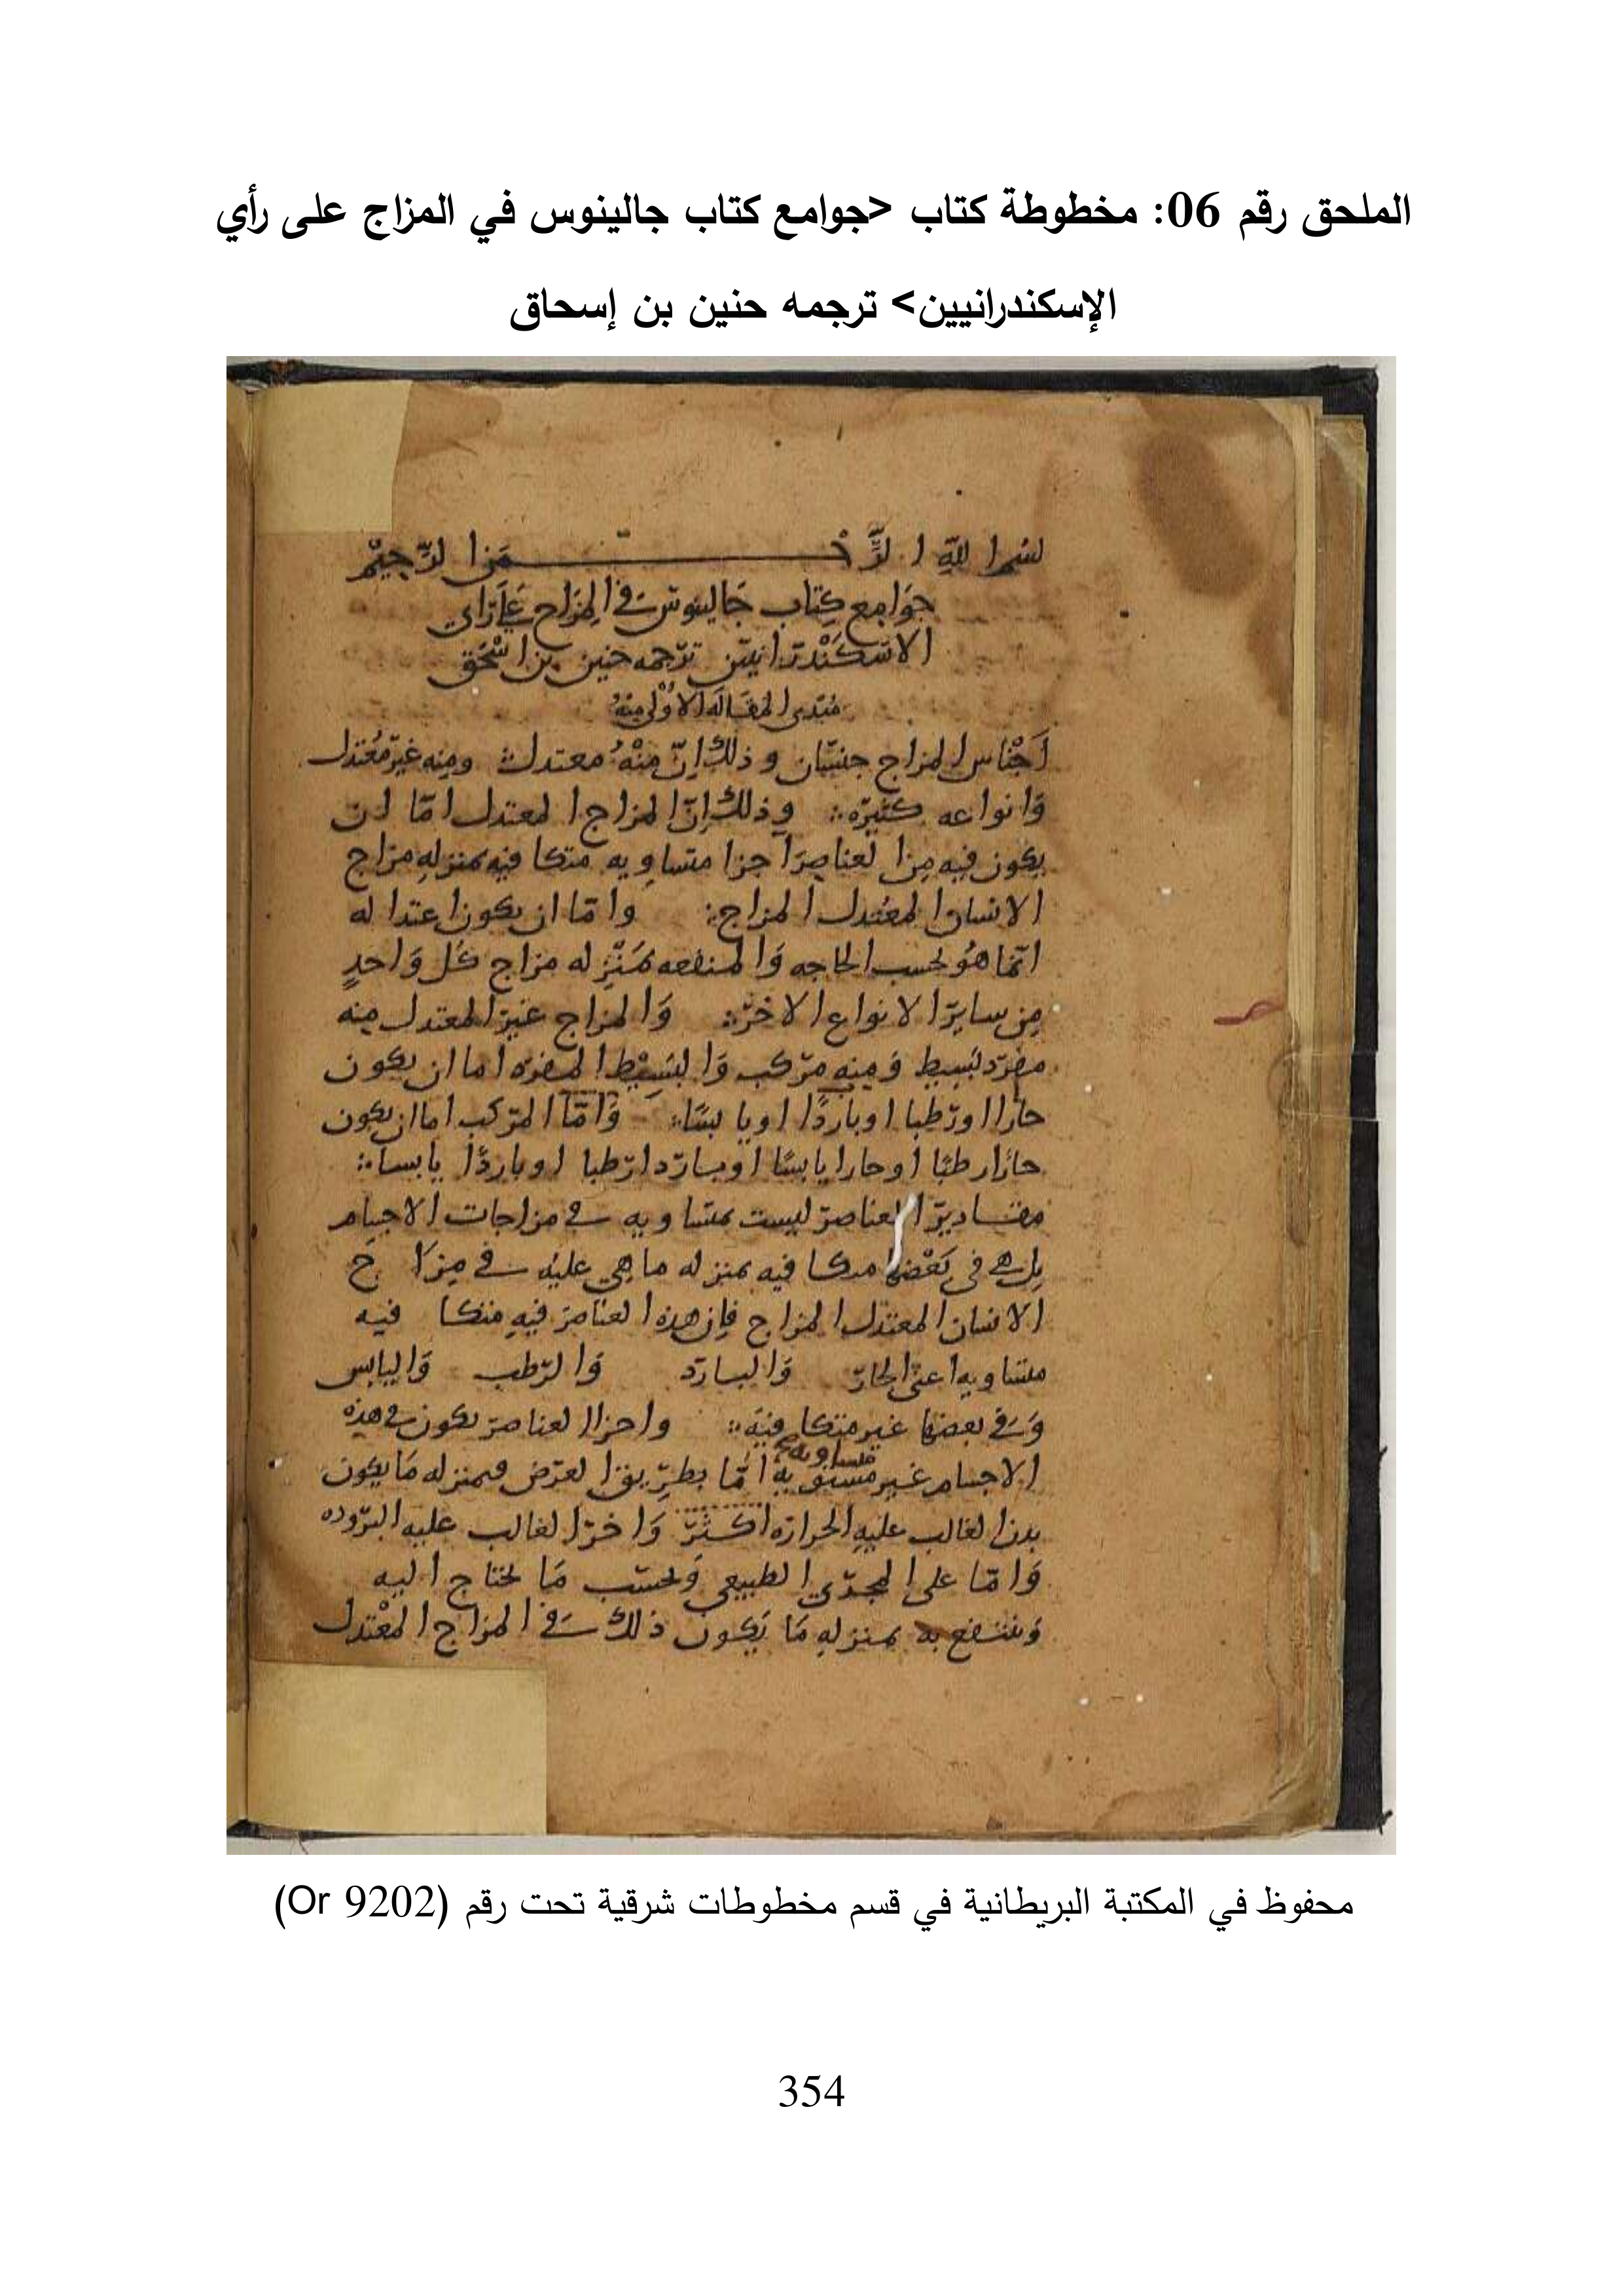 الملحق رقم 06: مخطوطة كتاب <جوامع كتاب جالينوس في المزاج على رأي
الإسكندرانيين> ترجمه حنين بن إسحاق
بسم الله الرحمن الرحيم
جوامع كتاب جالينوس في المزاج على راي
الاسكندرانيين ترجمه حنين بن اسحق
مبتدى المقاله الاولى منه
اجناس المزاج جنسان وذلك ان منه معتدل ومنه غير معتدل
وانواعه كثيره وذلك ان المزاج المعتدل اما ان
يكون فيه من العناصر اجزا متساويه متكافيه بمنزله مزاج
الانسان المعتدل المزاج واما ان يكون اعتداله
انما هو بحسب الحاجه والمنفعه بمنزله مزاج كل واحد
من ساير الانواع الاخر والمزاج غير المعتدل منه
مفرد بسيط ومنه مركب والبسيط المفرد اما ان يكون
حارا او رطبا او باردا او يابسا واما المركب اما ان يكون
حارا رطبا او حارا يابسا او باردا رطبا او باردا يابسا
مقادير العناصر ليست متساويه في مزاجات الاجسام
بل هي في بعضها متكافيه بمنزله ما هي عليه في مزاج
الانسان المعتدل المزاج فان هذه العناصر فيه متكافيه
متساويه اعني الحار والبارد والرطب واليابس
وفي بعضها غير متكافيه واجزا العناصر يكون في هذه
متساويه
الاجسام غير مستويه اما بطريق العرض فبمنزله ما يكون
بدن الغالب عليه الحراره اكثر واخر الغالب عليه البروده
واما على المجرى الطبيعي وبحسب ما يحتاج اليه
وينتفع به بمنزله ما يكون ذلك في المزاج المعتدل
محفوظ في المكتبة البريطانية في قسم مخطوطات شرقية تحت رقم (Or 9202)
354